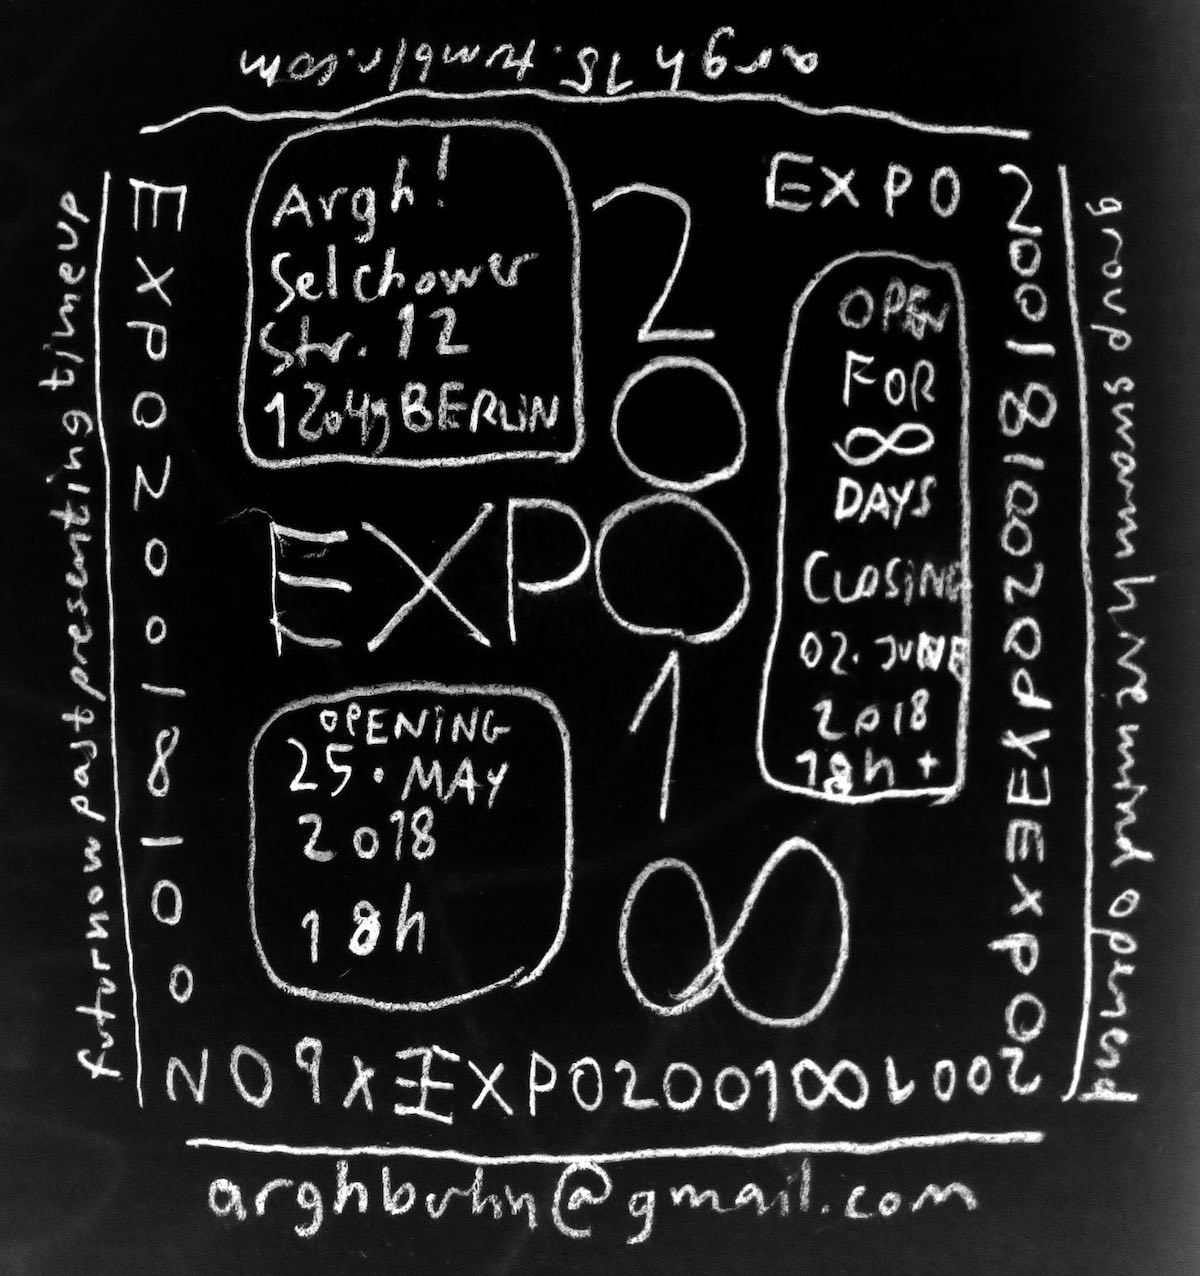 argh15.tumblr.com
Argh!
Selchower
Str. 12
12049 BERLIN
EXPO
2001∞
EXPO
OPEN
FOR
∞
DAYS
CLOSING
02. JUNE
2018
18h +
OPENING
25. MAY
2018
18h
futurnow past presenting timeup
EXPO2001∞100
2001∞1002OPXEEXPO2
group swarm hive mind opened
NOPXEXPO2001∞1002
arghbuhn@gmail.com